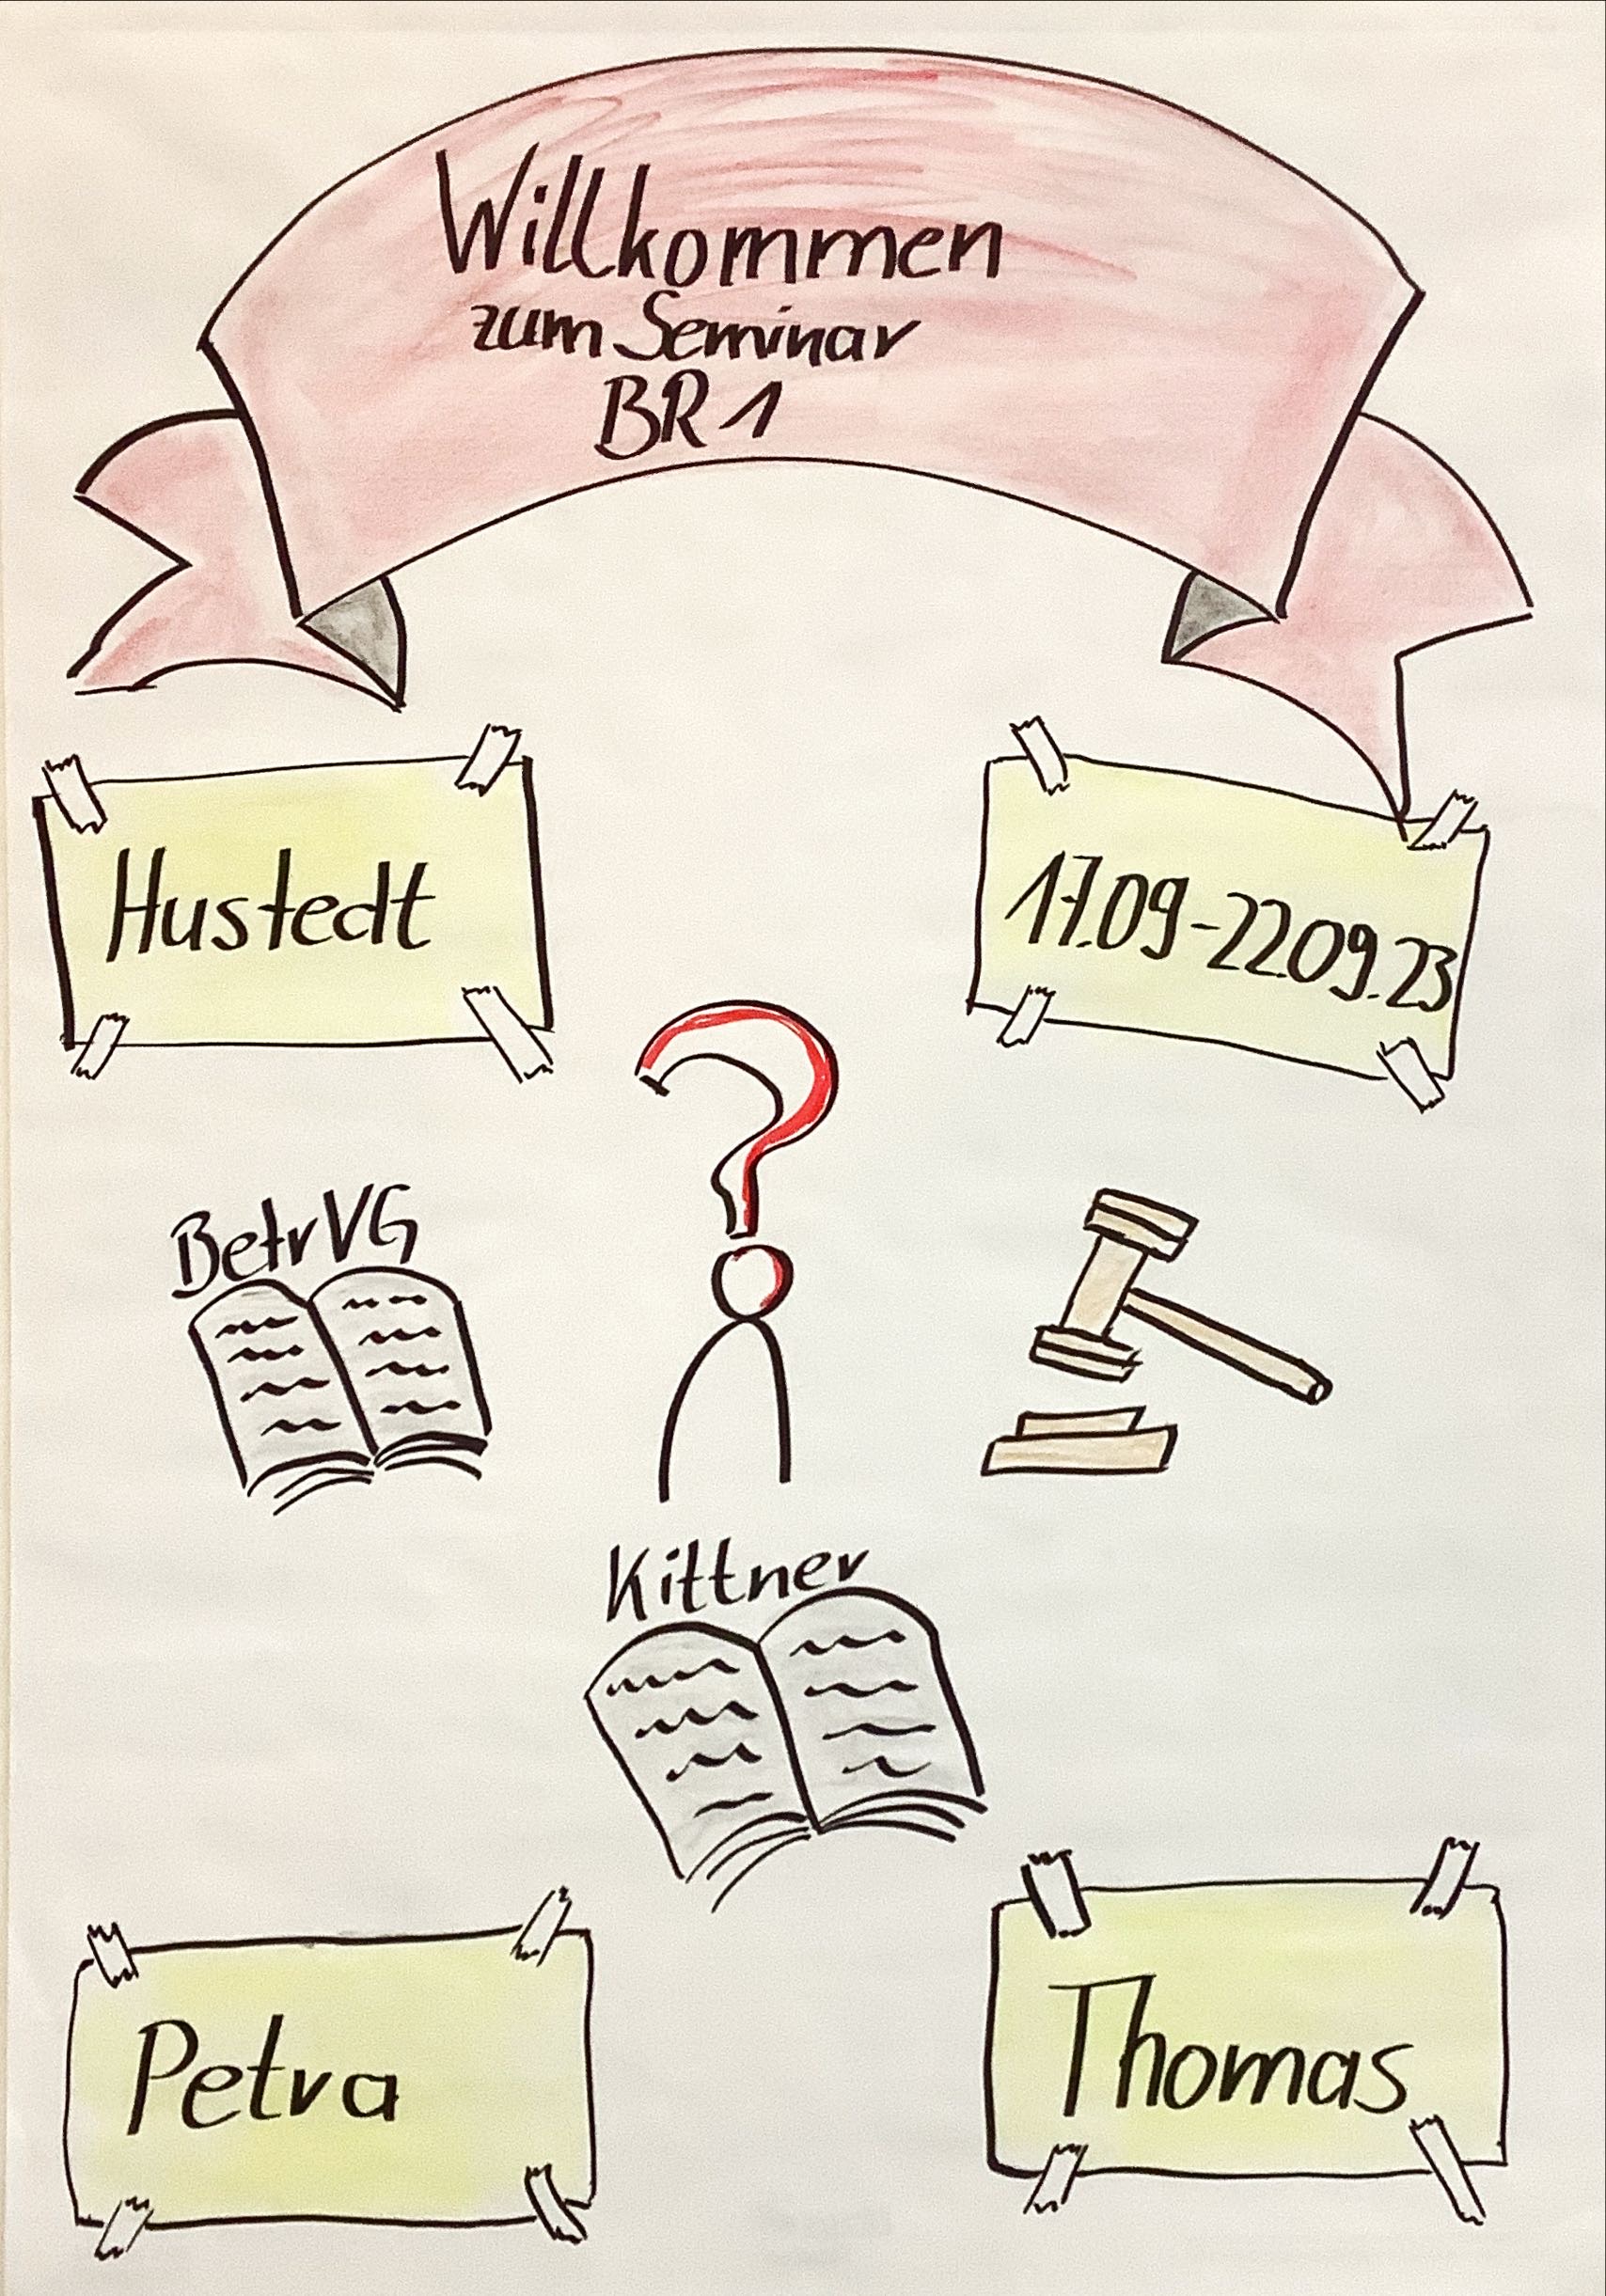 Willkommen
zum Seminar
BR 1
Hustedt
17.09-22.09.23
BetrVG
Kittner
Petra
Thomas